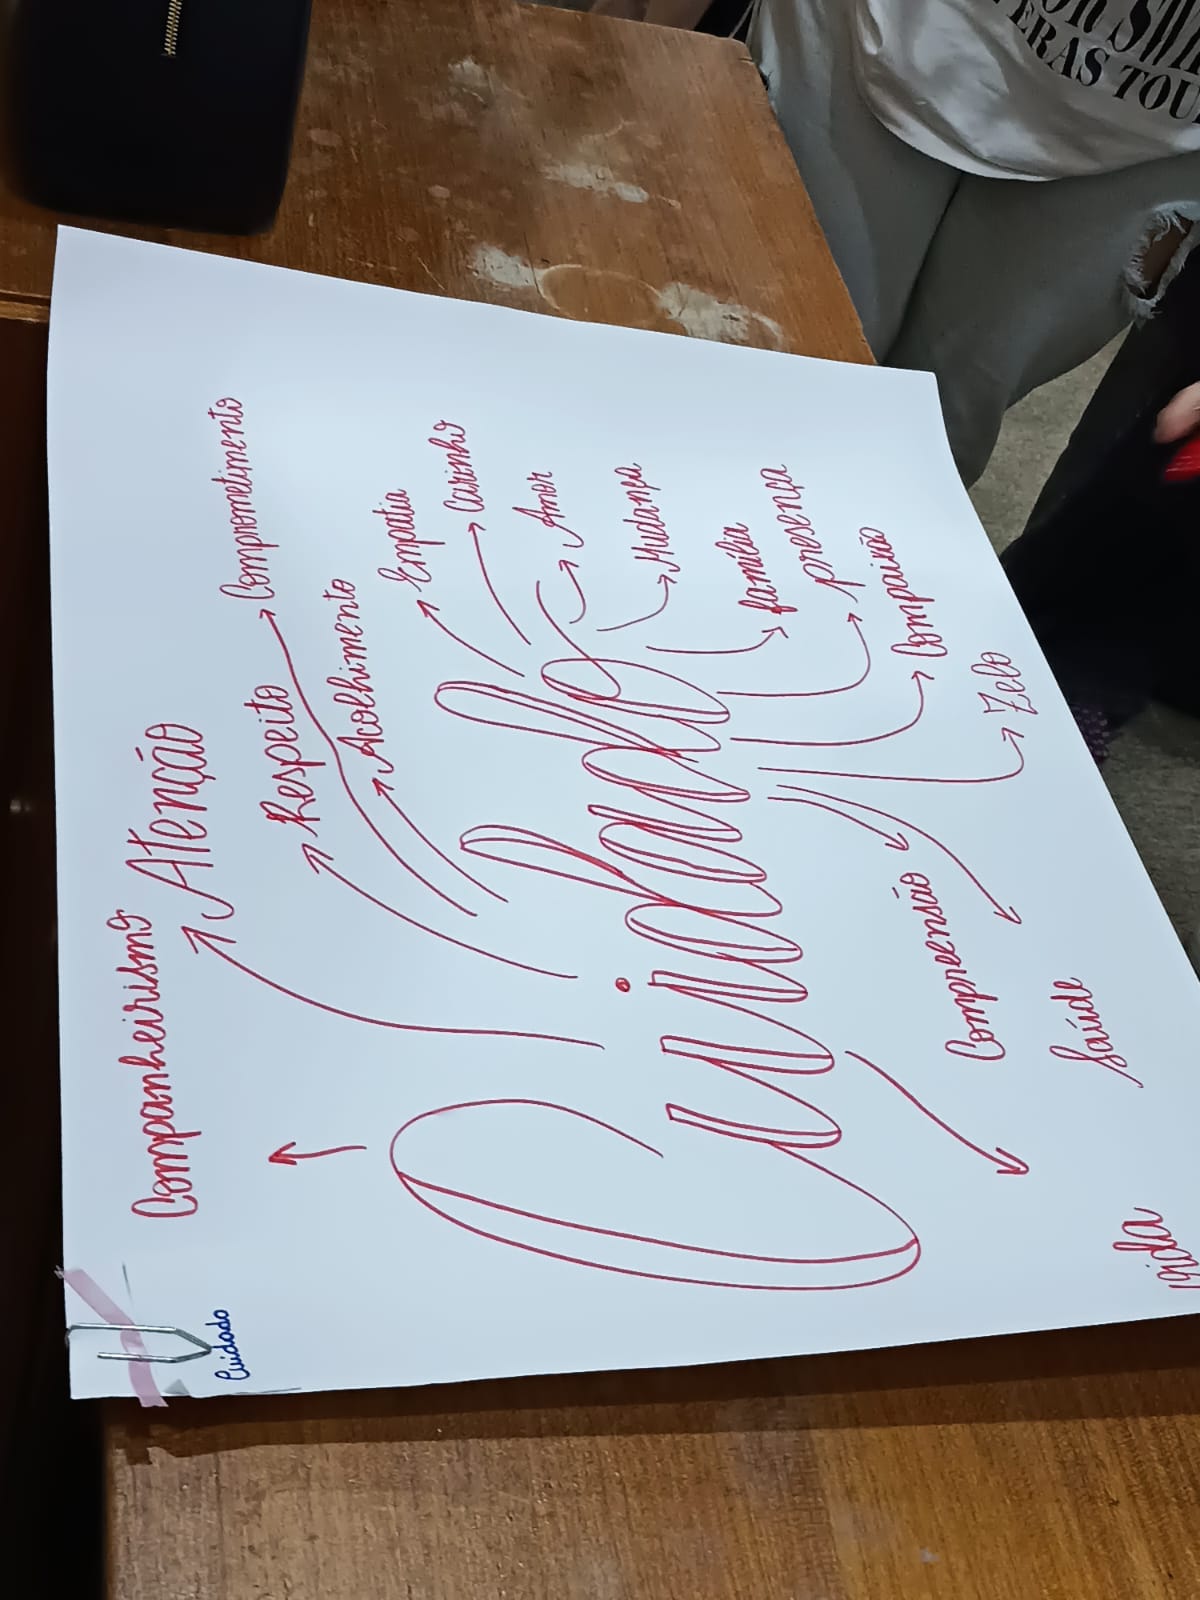 Cuidado
Companheirismo
Atenção
Respeito
Comprometimento
Acolhimento
Empatia
Carinho
Amor
Mudança
Cuidado
família
presença
Compaixão
Zelo
Compreensão
Saúde
Vida
ERAS TOU